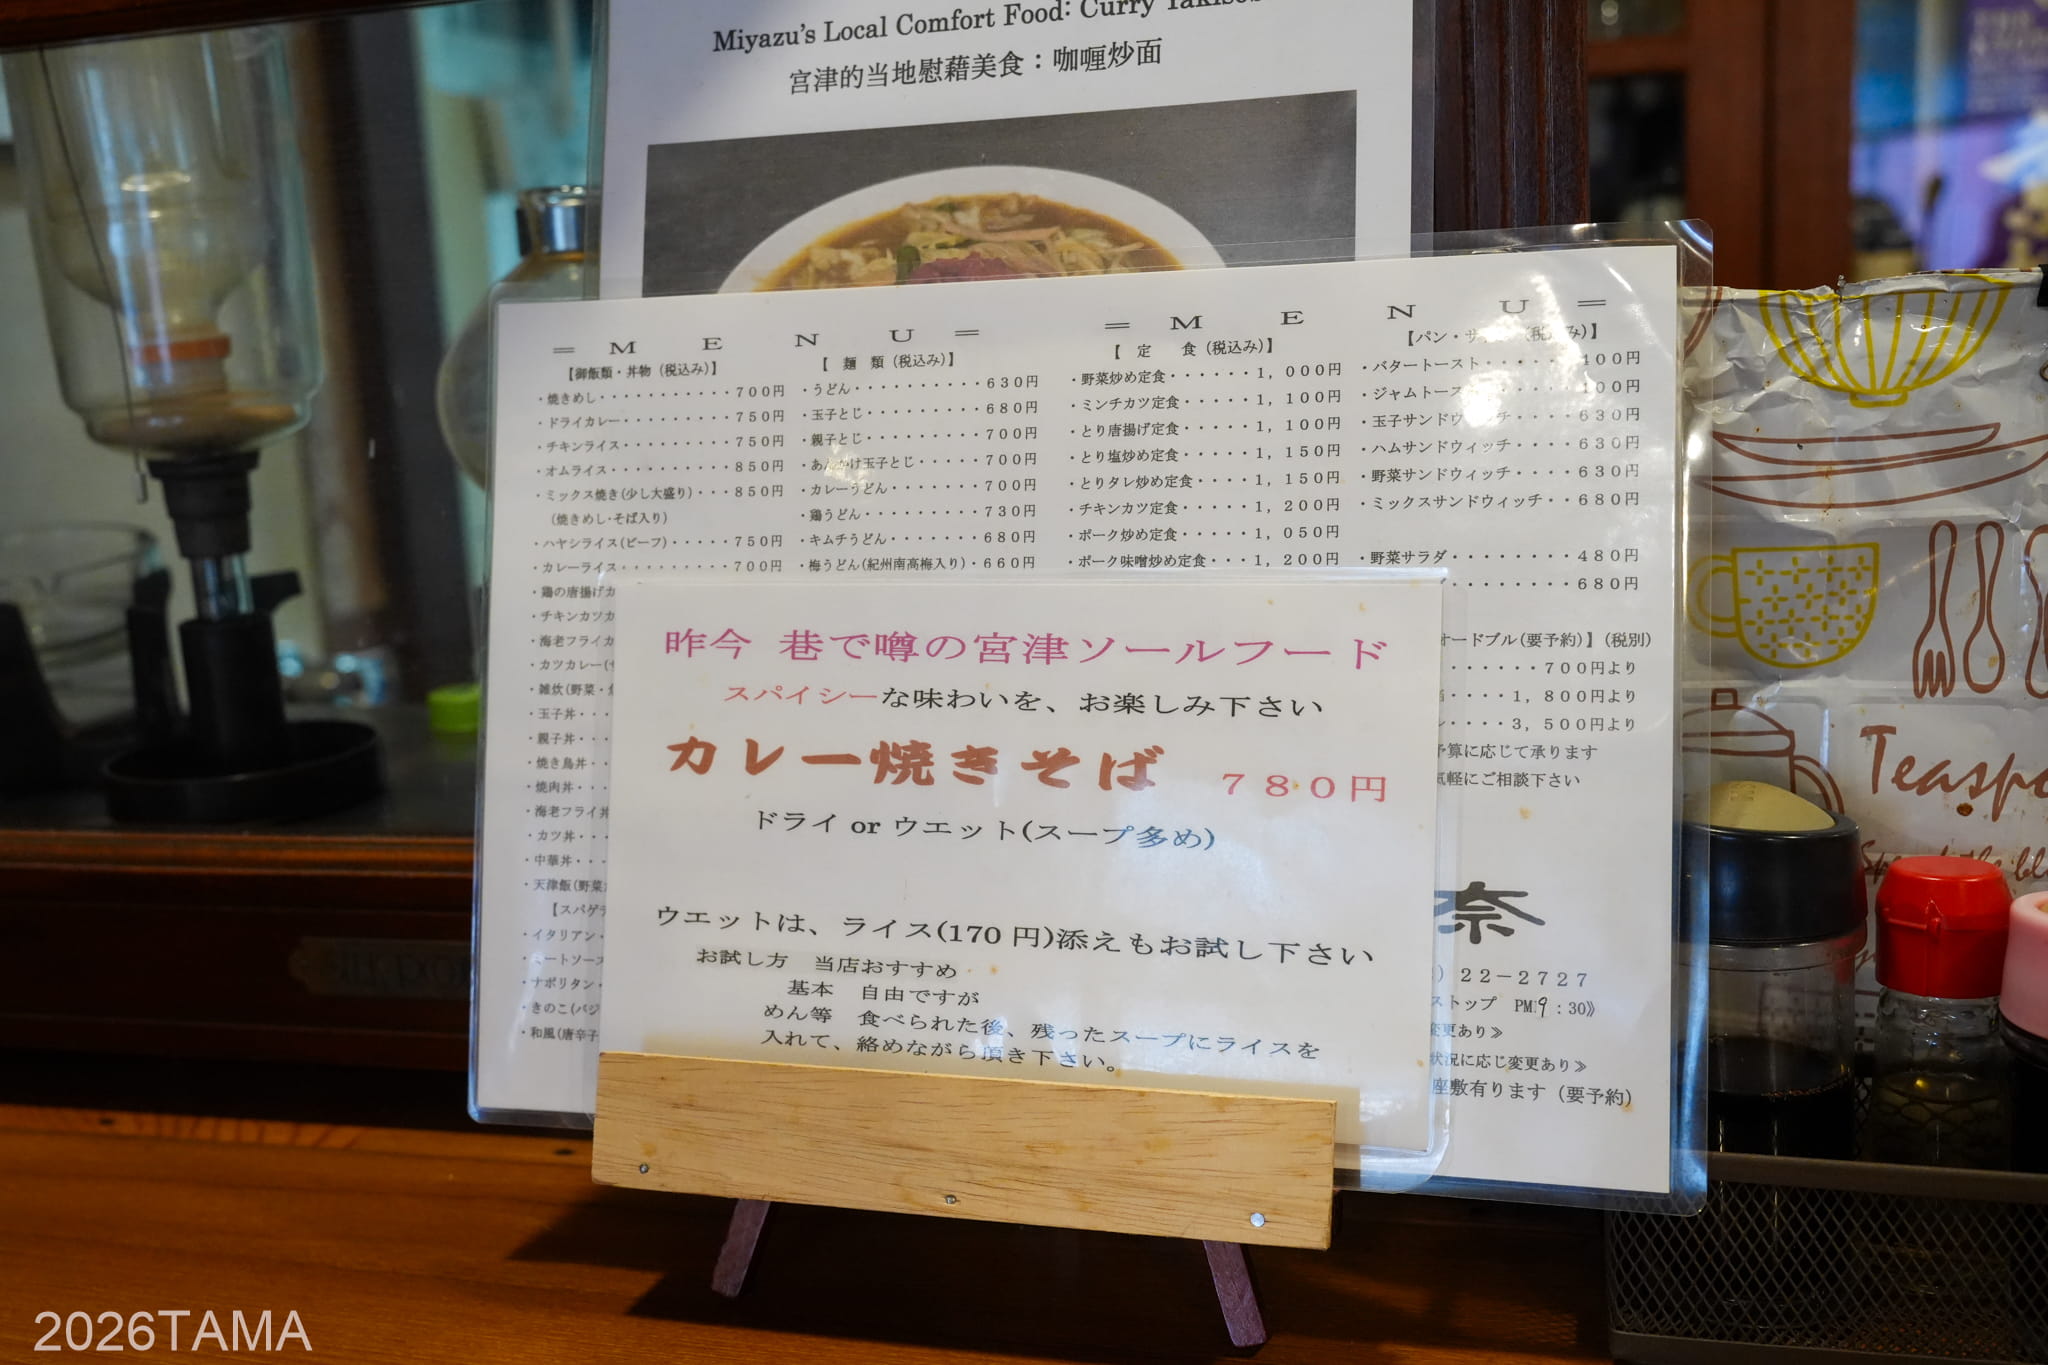 Miyazu's Local Comfort Food: Curry Yakisob
宮津的当地慰藉美食：咖喱炒面
＝ M E N U ＝
【御飯類・丼物（税込み）】
・焼きめし・・・・・・・・・・・７００円
・ドライカレー・・・・・・・・・７５０円
・チキンライス・・・・・・・・・７５０円
・オムライス・・・・・・・・・・８５０円
・ミックス焼き(少し大盛り)・・・８５０円
(焼きめし・そば入り)
・ハヤシライス(ビーフ)・・・・・７５０円
・カレーライス・・・・・・・・・７００円
・鶏の唐揚げカ
・チキンカツカ
・海老フライカ
・カツカレー(
・雑炊(野菜・
・玉子丼・・・
・親子丼・・・
・焼き鳥丼・・
・焼肉丼・・・
・海老フライ丼
・カツ丼・・・
・中華丼・・・
・天津飯(野菜
【スパゲテ
・イタリアン・
・ミートソース
・ナポリタン・
・きのこ(バジ
・和風(唐辛子
【 麺 類（税込み）】
・うどん・・・・・・・・・・６３０円
・玉子とじ・・・・・・・・・６８０円
・親子とじ・・・・・・・・・７００円
・あんかけ玉子とじ・・・・・７００円
・カレーうどん・・・・・・・７００円
・鶏うどん・・・・・・・・・７３０円
・キムチうどん・・・・・・・６８０円
・梅うどん(紀州南高梅入り)・６６０円
＝ M E N U ＝
【 定 食（税込み）】
・野菜炒め定食・・・・・・１，０００円
・ミンチカツ定食・・・・・１，１００円
・とり唐揚げ定食・・・・・１，１００円
・とり塩炒め定食・・・・・１，１５０円
・とりタレ炒め定食・・・・１，１５０円
・チキンカツ定食・・・・・１，２００円
・ポーク炒め定食・・・・・１，０５０円
・ポーク味噌炒め定食・・・１，２００円
【パン・サ (税込み)】
・バタートースト・・・・・・４００円
・ジャムトースト・・・・・・４００円
・玉子サンドウィッチ・・・・６３０円
・ハムサンドウィッチ・・・・６３０円
・野菜サンドウィッチ・・・・６３０円
・ミックスサンドウィッチ・・６８０円
・野菜サラダ・・・・・・・・４８０円
・・・・・・・・６８０円
オードブル(要予約)】(税別)
・・・・・・・７００円より
・・・・１，８００円より
・・・・３，５００円より
予算に応じて承ります
気軽にご相談下さい
奈
) ２２－２７２７
ストップ PM 9：30》
変更あり≫
状況に応じ変更あり≫
座敷有ります（要予約）
昨今 巷で噂の宮津ソールフード
スパイシーな味わいを、お楽しみ下さい
カレー焼きそば ７８０円
ドライ or ウエット(スープ多め)
ウエットは、ライス(170 円)添えもお試し下さい
お試し方 当店おすすめ
基本 自由ですが
めん等 食べられた後、残ったスープにライスを
入れて、絡めながら頂き下さい。
Teaspo
2026TAMA